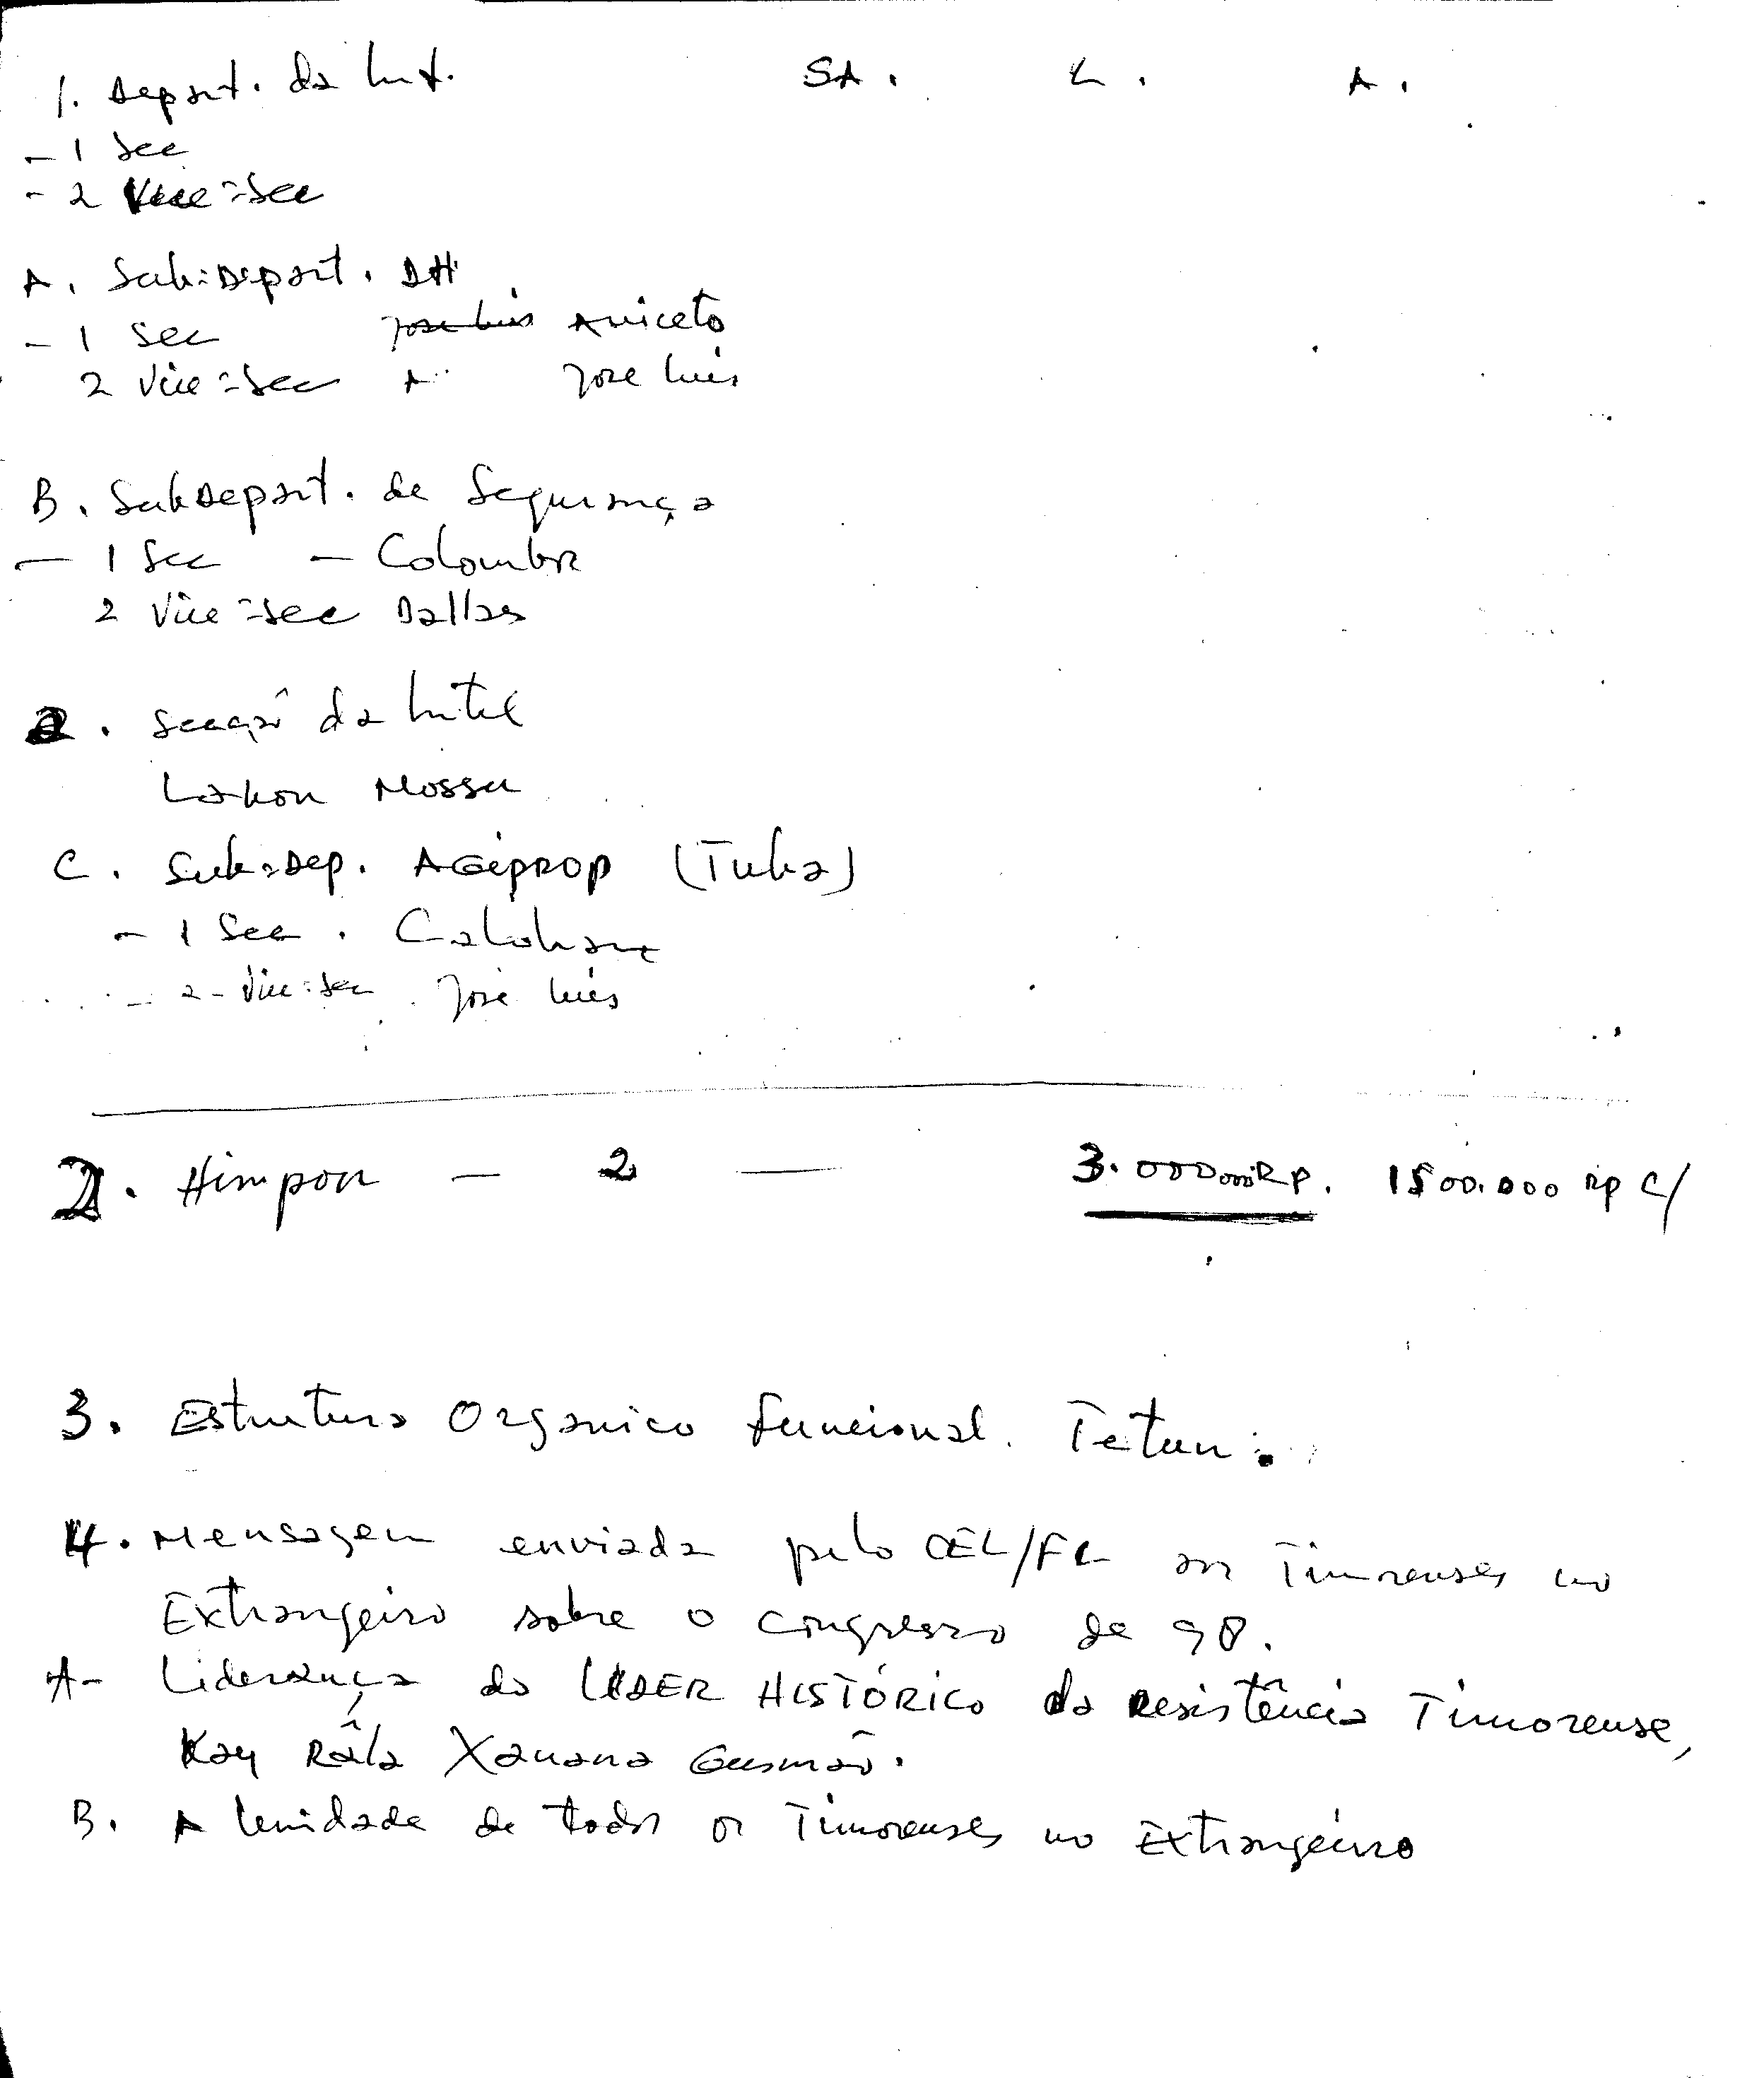 1. Depart. da Int. SA. L. A.
- 1 Sec
- 2 Vice=Sec
A. Sub=Depart. DH
- 1 Sec José Luis Aniceto
2 Vice=Sec A José Luis
B. SubDepart. de Segurança
- 1 Sec - Colombo
2 Vice=Sec Dallas
2. Secção da Intel
Lakon Mossu
C. Sub=Dep. AGIPROP (Tuba)
- 1 Sec.
- 2 - Vice=Sec. José Luis
2. Himpon - 2 — 3.000.000Rp. 1500.000 Rp c/
3. Estrutura Organico funcional. Tetun.
4. Mensagem enviada pelo CEL/FL aos Timorenses no
Extrangeiro sobre o congresso de 98.
A- Liderança do LIDER HISTÓRICO da Resistência Timorense,
Kay Râla Xanana Gusmão.
B. A Unidade de todos os Timorenses no Extrangeiro